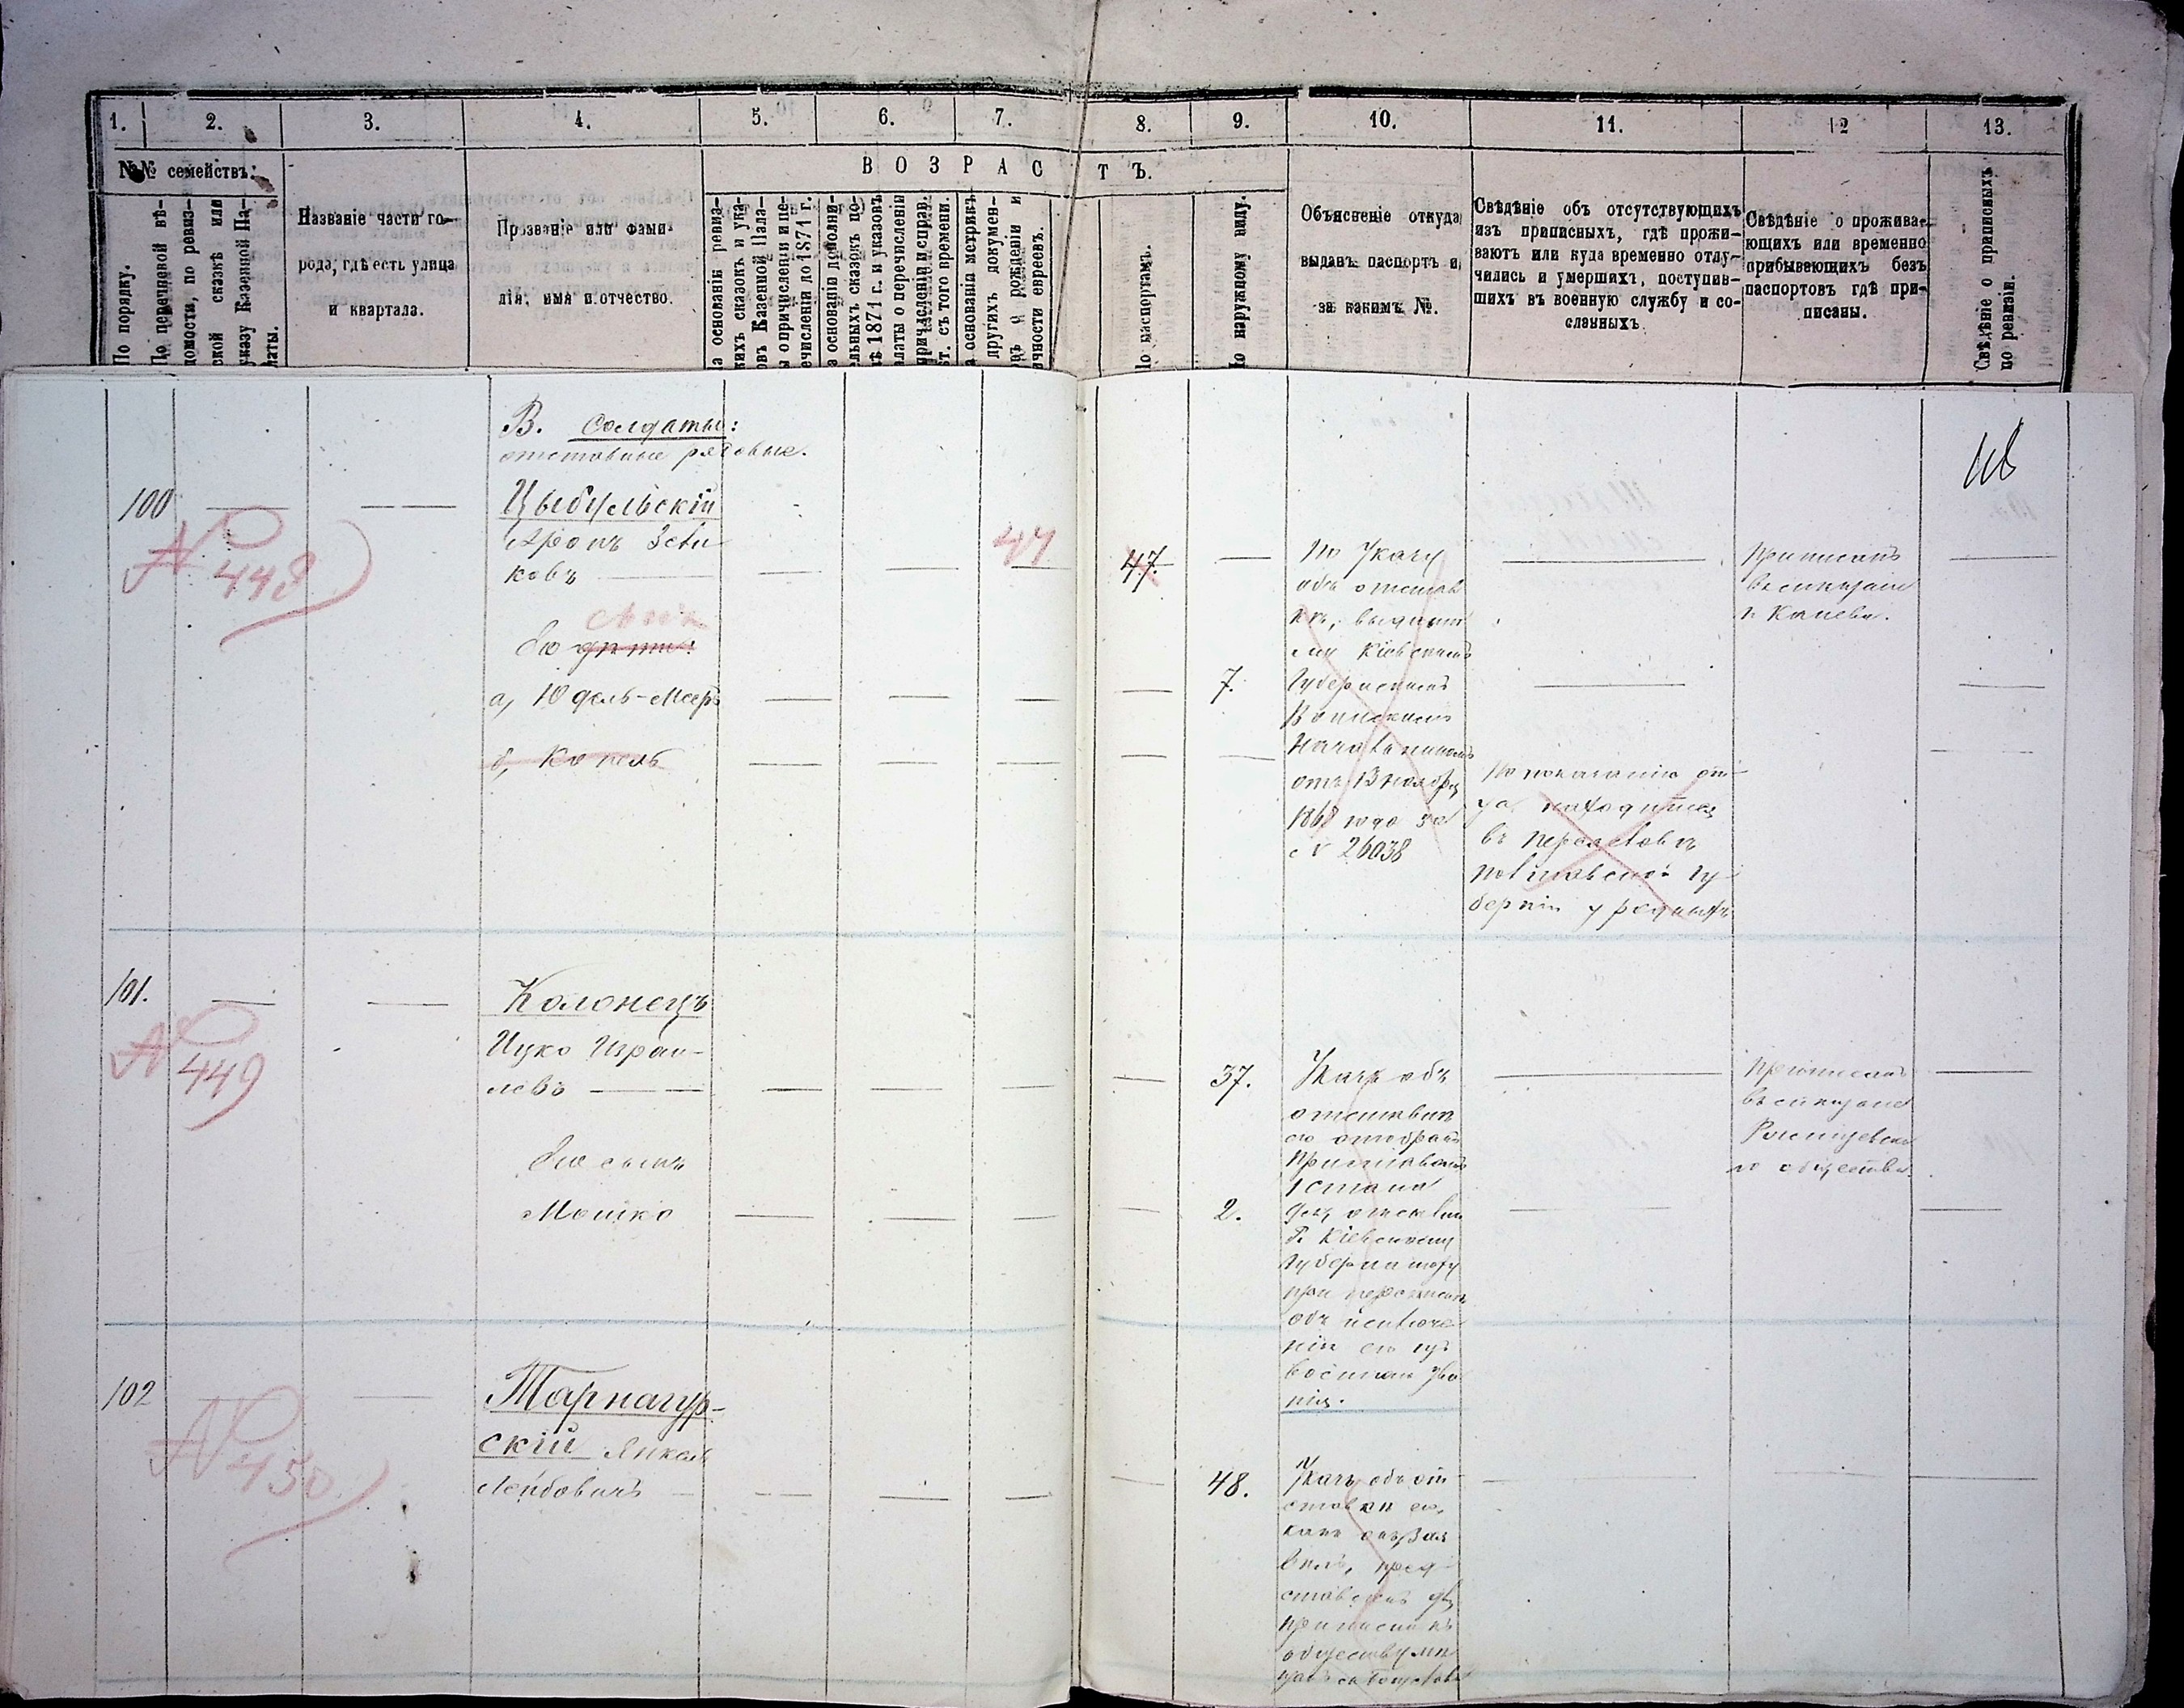 1. 2. 3. 4. 5. 6. 7. 8. 9. 10. 11. 12 13.
№№ семействъ.
ВОЗРАСТЪ.
По порядку.
По перечневой вѣ-
домости, по ревиз-
ской сказкѣ или
указу Казенной Па-
латы.
Названіе части го-
рода, гдѣ есть улица
и квартала.
Прозваніе или фами-
лія, имя и отчество.
а основаніи ревиз-
кихъ сказокъ и ука-
овъ Казенной Пала-
ы о причисленіи и пе-
ечисленіи до 1871 г.
а основаніи дополни-
ельныхъ сказокъ по-
ѣ 1871 г. и указовъ
латы о перечисленіи
причисленіи и справ.
ст. съ того времени.
а основаніи метрикъ
других докумен-
о рожденіи и
ичности евреевъ.
По паспортамъ.
По наружному виду.
Объясненіе откуда
выданъ паспортъ и
за какимъ №.
Свѣдѣніе объ отсутствующихъ
изъ приписныхъ, гдѣ прожи-
ваютъ или куда временно отлу-
чились и умершихъ, поступив-
шихъ въ военную службу и со-
сланныхъ.
Свѣдѣніе о прожива-
ющихъ или временно
прибывающихъ безъ
паспортовъ гдѣ при-
писаны.
Свѣдѣніе о приписныхъ
по ревизіи.
В. Солдаты:
отставные рядовые.
100
№ 448
Цыбульскій
Аронъ Зели
ковъ
47
47.
По Указу
объ отстав
кѣ, выданно
му Кіевскимъ
Губернскимъ
Воинскимъ
Начальникомъ
отъ 13 ноября
1868 года за
№ 26038
Приписанъ
къ
г. Канева.
его дѣти:
сынъ
а, Юдель-Мееръ
7.
б, Копель
По показанію от-
ца находится
въ Переяславѣ
Полтавской гу-
берніи у родныхъ
101.
№ 449
Колонецъ
Ицко Израи-
левъ
37.
Указъ объ
отставкѣ
его отобранъ
Приставомъ
1 стана
для отсылки
къ Кіевскому
Губернатору
при перепискѣ
объ исключе
ніи его изъ
воинскаго зва
нія.
Приписанъ
къ
общества.
его сынъ
Мошко
2.
102
№ 450
Тарнагур-
скій Янкель
Лейбовичъ
48.
Указъ объ от
ставкѣ его,
какъ онъ зая
вилъ, пред-
ставленъ для
приписки къ
обществу мѣ